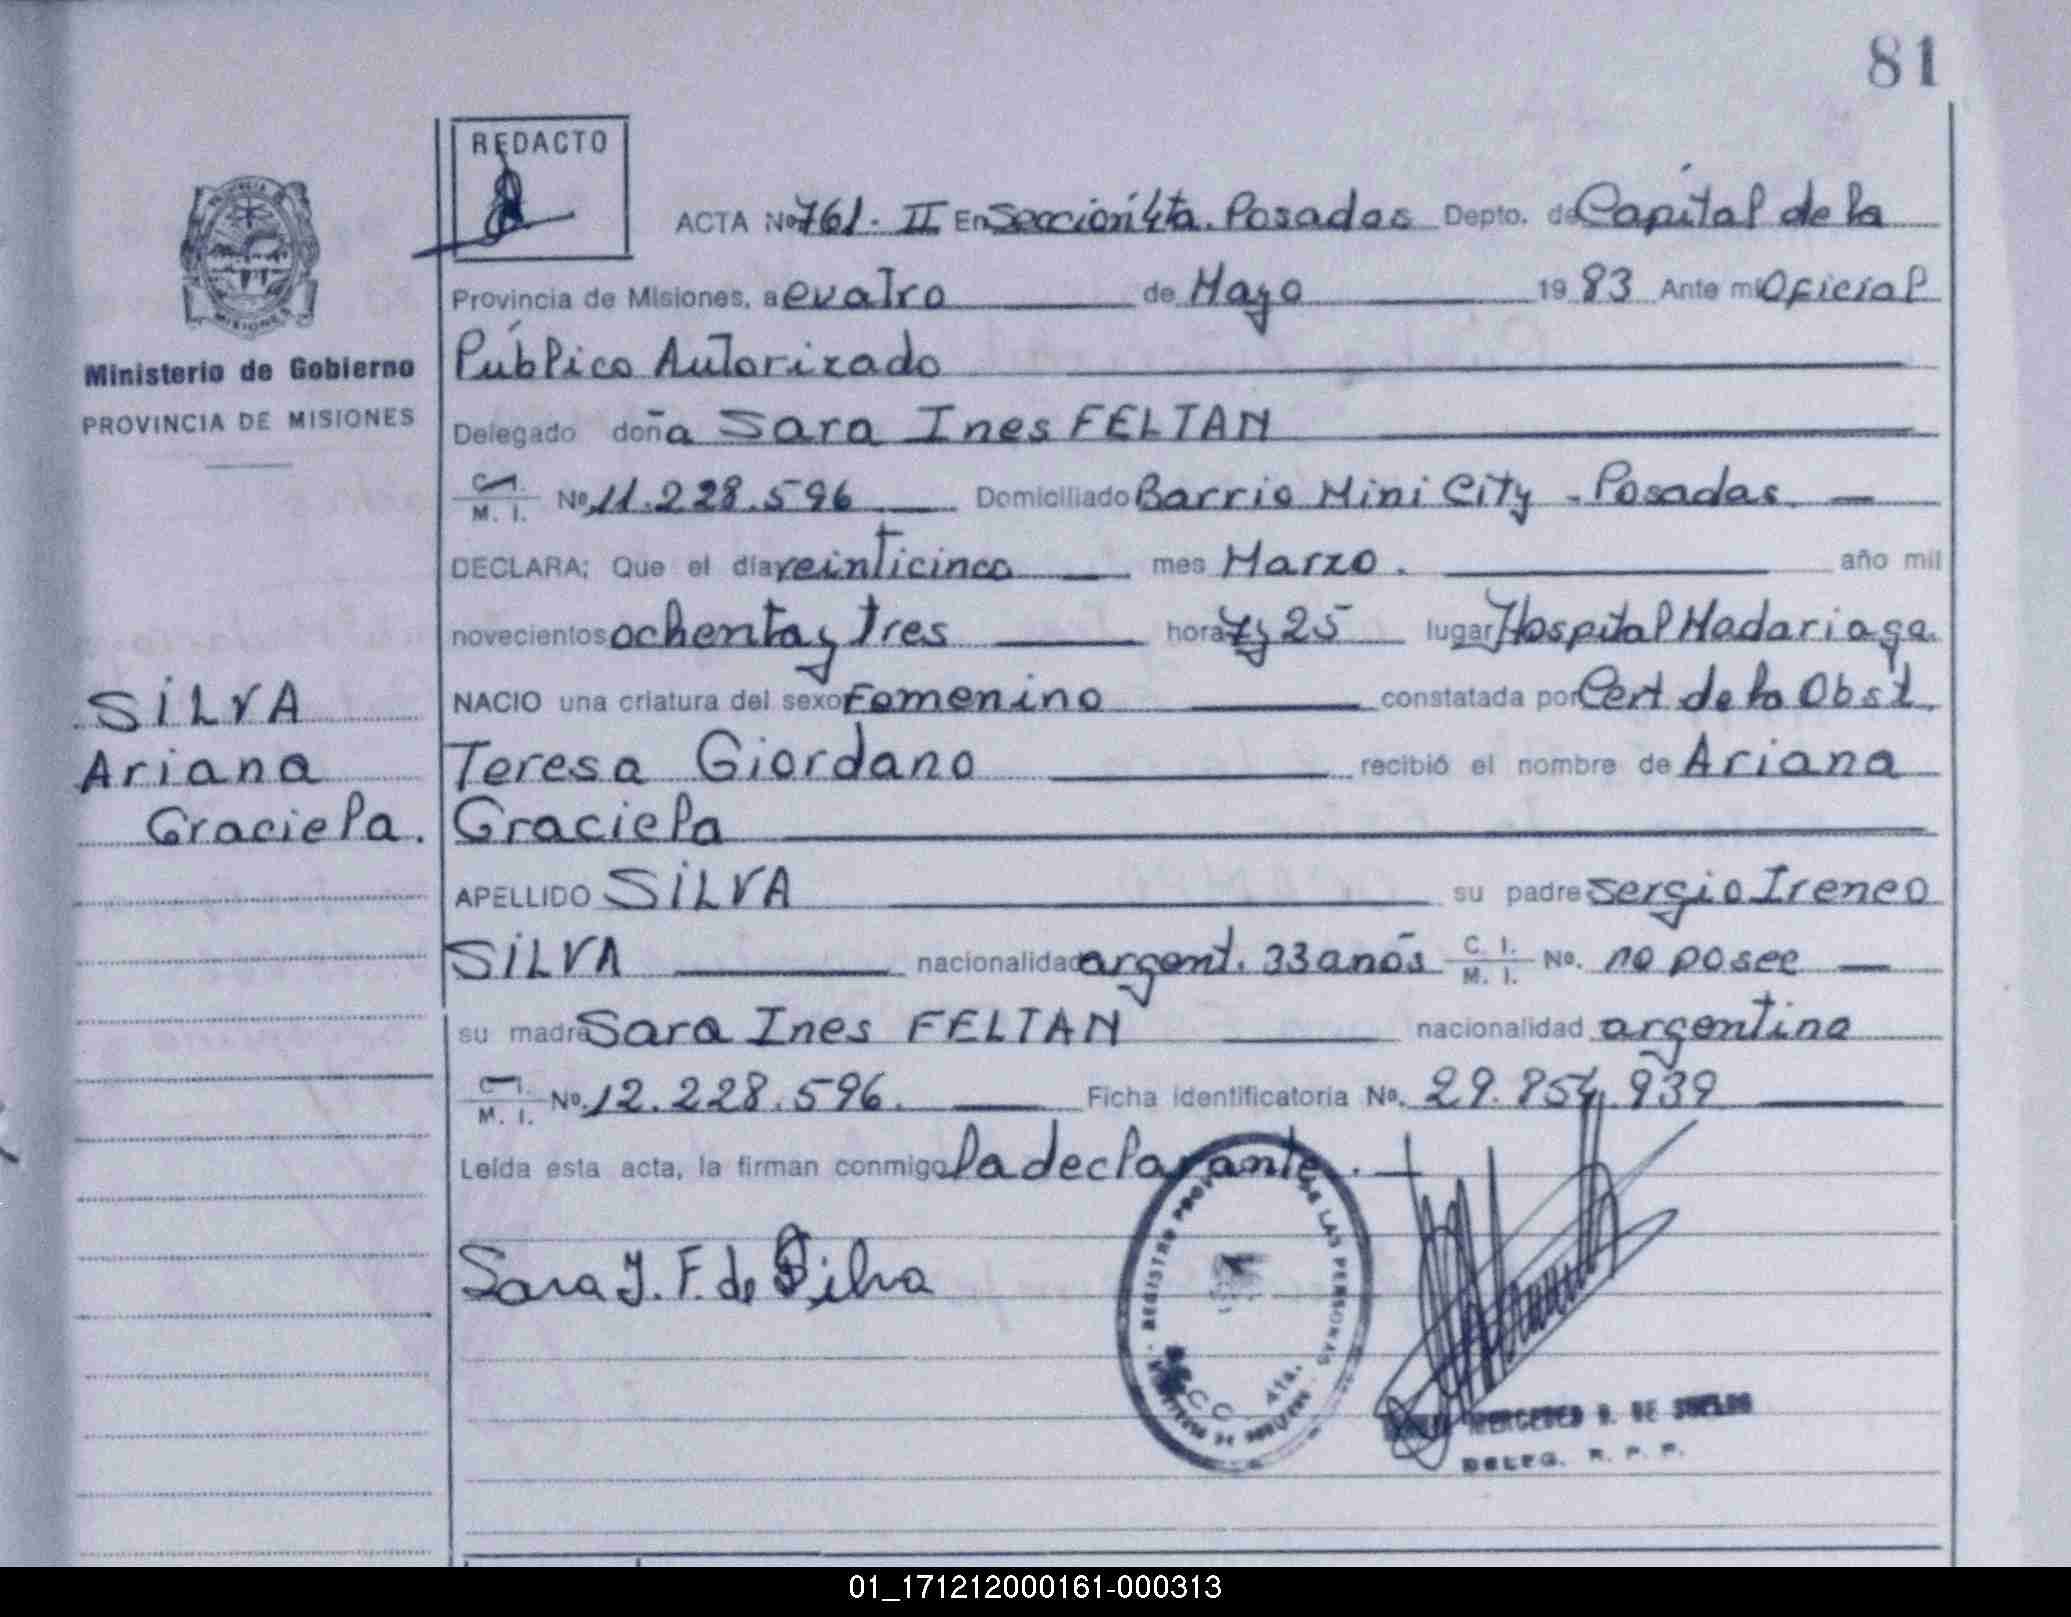 81
REDACTO
ACTA No 761 - II En Sección 4ta. Posadas Depto. de Capital de la
Provincia de Misiones, a cuatro de Mayo 19 83 Ante mi Oficial
Ministerio de Gobierno
PROVINCIA DE MISIONES
Público Autorizado
Delegado doña Sara Ines FELTAN
C. I.
M. I. No. 11.228.596 Domiciliado Barrio Mini City - Posadas.
DECLARA; Que el día veinticinco mes Marzo. año mil
novecientos ochenta y tres hora 7 y 25 lugar Hospital Madariaga.
NACIO una criatura del sexo Femenino constatada por Cert. de la Obst.
Teresa Giordano recibió el nombre de Ariana
Graciela
SILVA
Ariana
Graciela.
APELLIDO SILVA su padre Sergio Ireneo
SILVA nacionalidad argent. 33 años C. I.
M. I. No. no posee
su madre Sara Ines FELTAN nacionalidad argentina
C. I.
M. I. No. 12.228.596. Ficha identificatoria No. 29.854.939
Leída esta acta, la firman conmigo la declarante.
Sara I. F. de Silva
REGISTRO DE LAS PERSONAS
SECC. 4ta.
MERCEDES DE
DELEG. R. P. P.
01_171212000161-000313